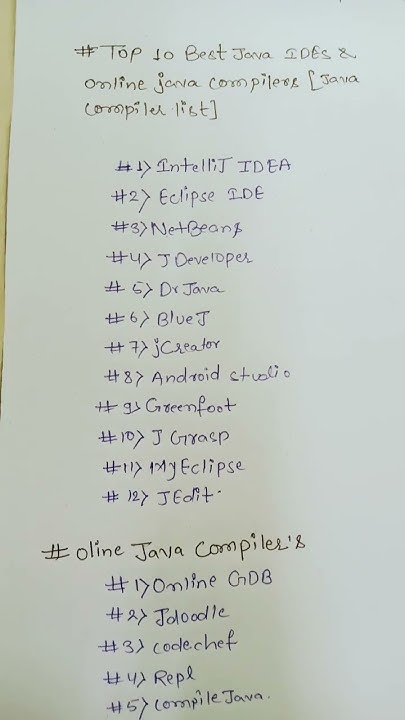 # Top 10 Best Java IDEs &
online java compilers [Java
compiler list]
#1) IntelliJ IDEA
#2) Eclipse IDE
#3) NetBeans
#4) J Developer
# 5) Dr Java
#6) BlueJ
#7) jCreator
#8) Android studio
#9) Greenfoot
#10) J Grasp
#11) MyEclipse
# 12) JEdit.
# oline Java Compiler's
#1) Online GDB
#2) Jdoodle
#3) codechef
#4) Repl
#5) CompileJava.